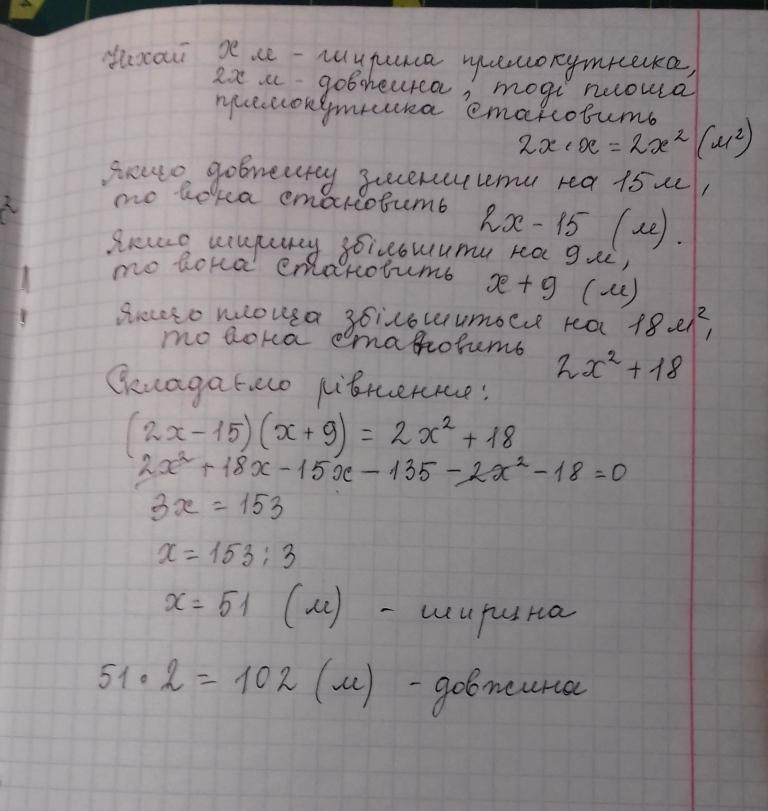 Нехай x м – ширина прямокутника,
2x м – довжина, тоді площа
прямокутника становить
2x·x = 2x² (м²)
Якщо довжину зменшити на 15 м,
то вона становить
2x – 15 (м).
Якшо ширину збільшити на 9 м,
то вона становить
x + 9 (м)
Якщо площа збільшиться на 18 м²,
то вона становить
2x² + 18
Складаємо рівняння:
(2x – 15)(x + 9) = 2x² + 18
2x² + 18x – 15x – 135 – 2x² – 18 = 0
3x = 153
x = 153 : 3
x = 51 (м) – ширина
51 · 2 = 102 (м) – довжина